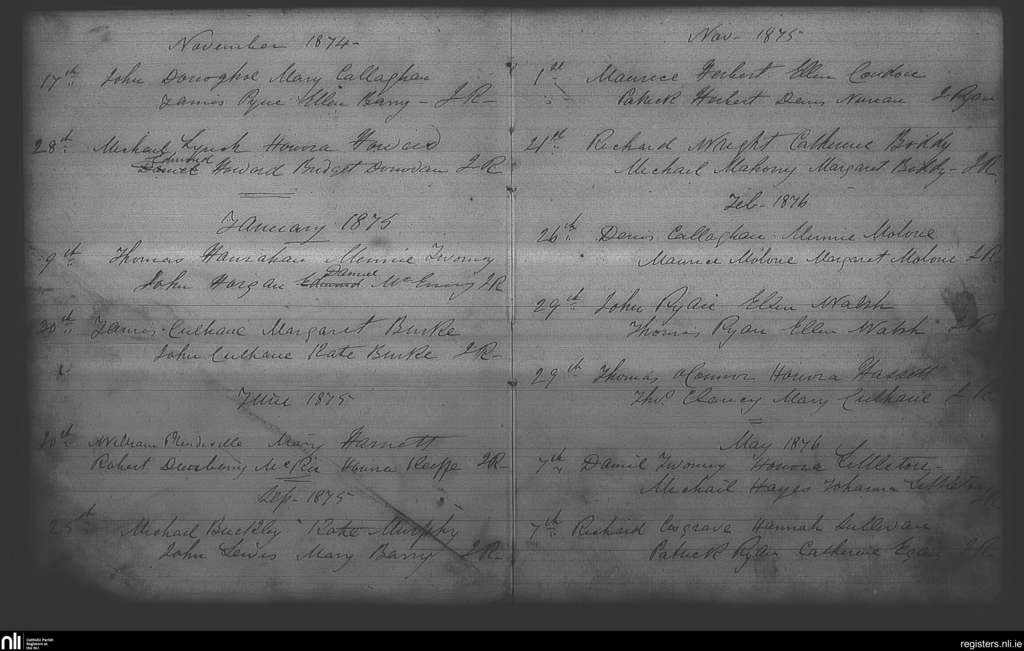 November 1874-
17th John Donoghoe Mary Callaghan
James Pyne Ellen Barry - J R-
28th Michael Lynch Honora Howard
Edmund
Daniel Howard Bridget Donovan J R
January 1875
9th Thomas Hanrahan Minnie Twomey
Daniel
John Horgan Edmund J R
30th James Culhane Margaret Burke
John Culhane Kate Burke J R-
June 1875
20th William Prindiville Mary Harnett
Robert Honora Keeffe J R-
Sep- 1875
25th Michael Buckley Kate Murphy
John Lewis Mary Barry J R-
Nov- 1875
1st Maurice Herbert Ellen Condon
Patrick Herbert Denis Nunan J Ryan
21st Richard Wright Catherine Boddy
Michael Mahony Margaret Boddy- J R
Feb- 1876
26th Denis Callaghan Minnie Molone
Maurice Molone Margaret Molone J R
29th John Ryan Ellen Walsh
Thomas Ryan Ellen Walsh J R
29th Thomas oConnor Honora Hassett
Thos Clancy Mary Culhane J R
May 1876
7th Daniel Twomey Honora Lettleton-
Michail Hayes Johanna Lettleton
7th Richard Cosgrave Hannah Sullivan
Patrick Ryan Catherine Egan J R
nli
Catholic Parish
Registers at
the NLI
registers.nli.ie